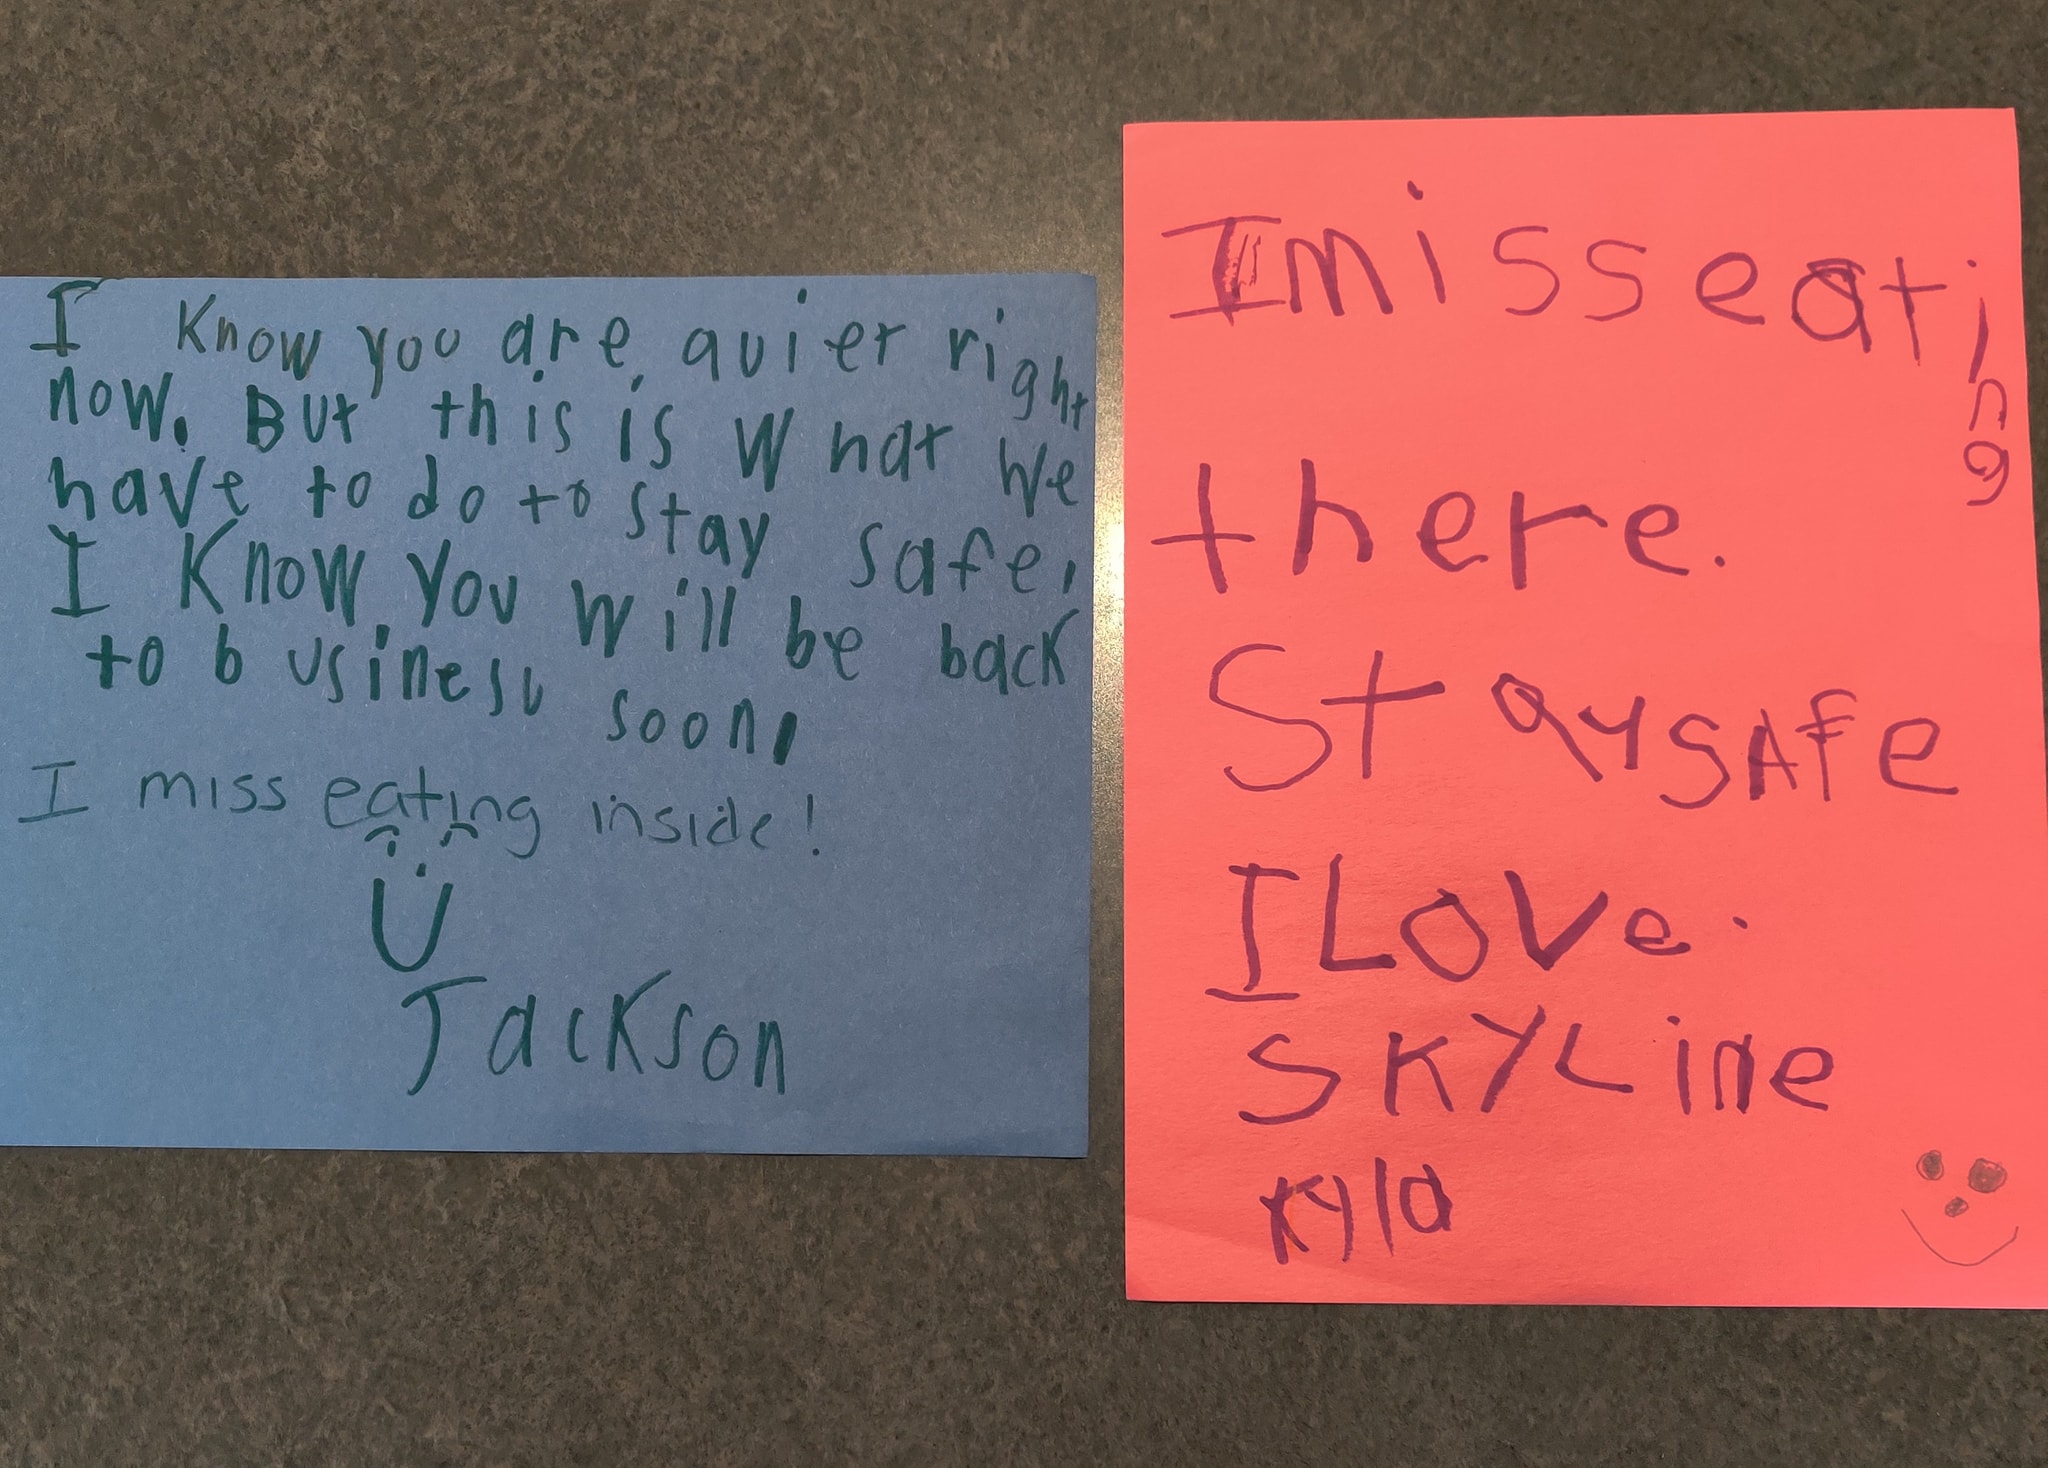 I know you are quiet right
now. But this is what we
have to do to stay safe,
I know you will be back
to business soon,
I miss eating inside!
Jackson
I miss eating
there.
Stay safe
I Love.
SKYLine
kyla